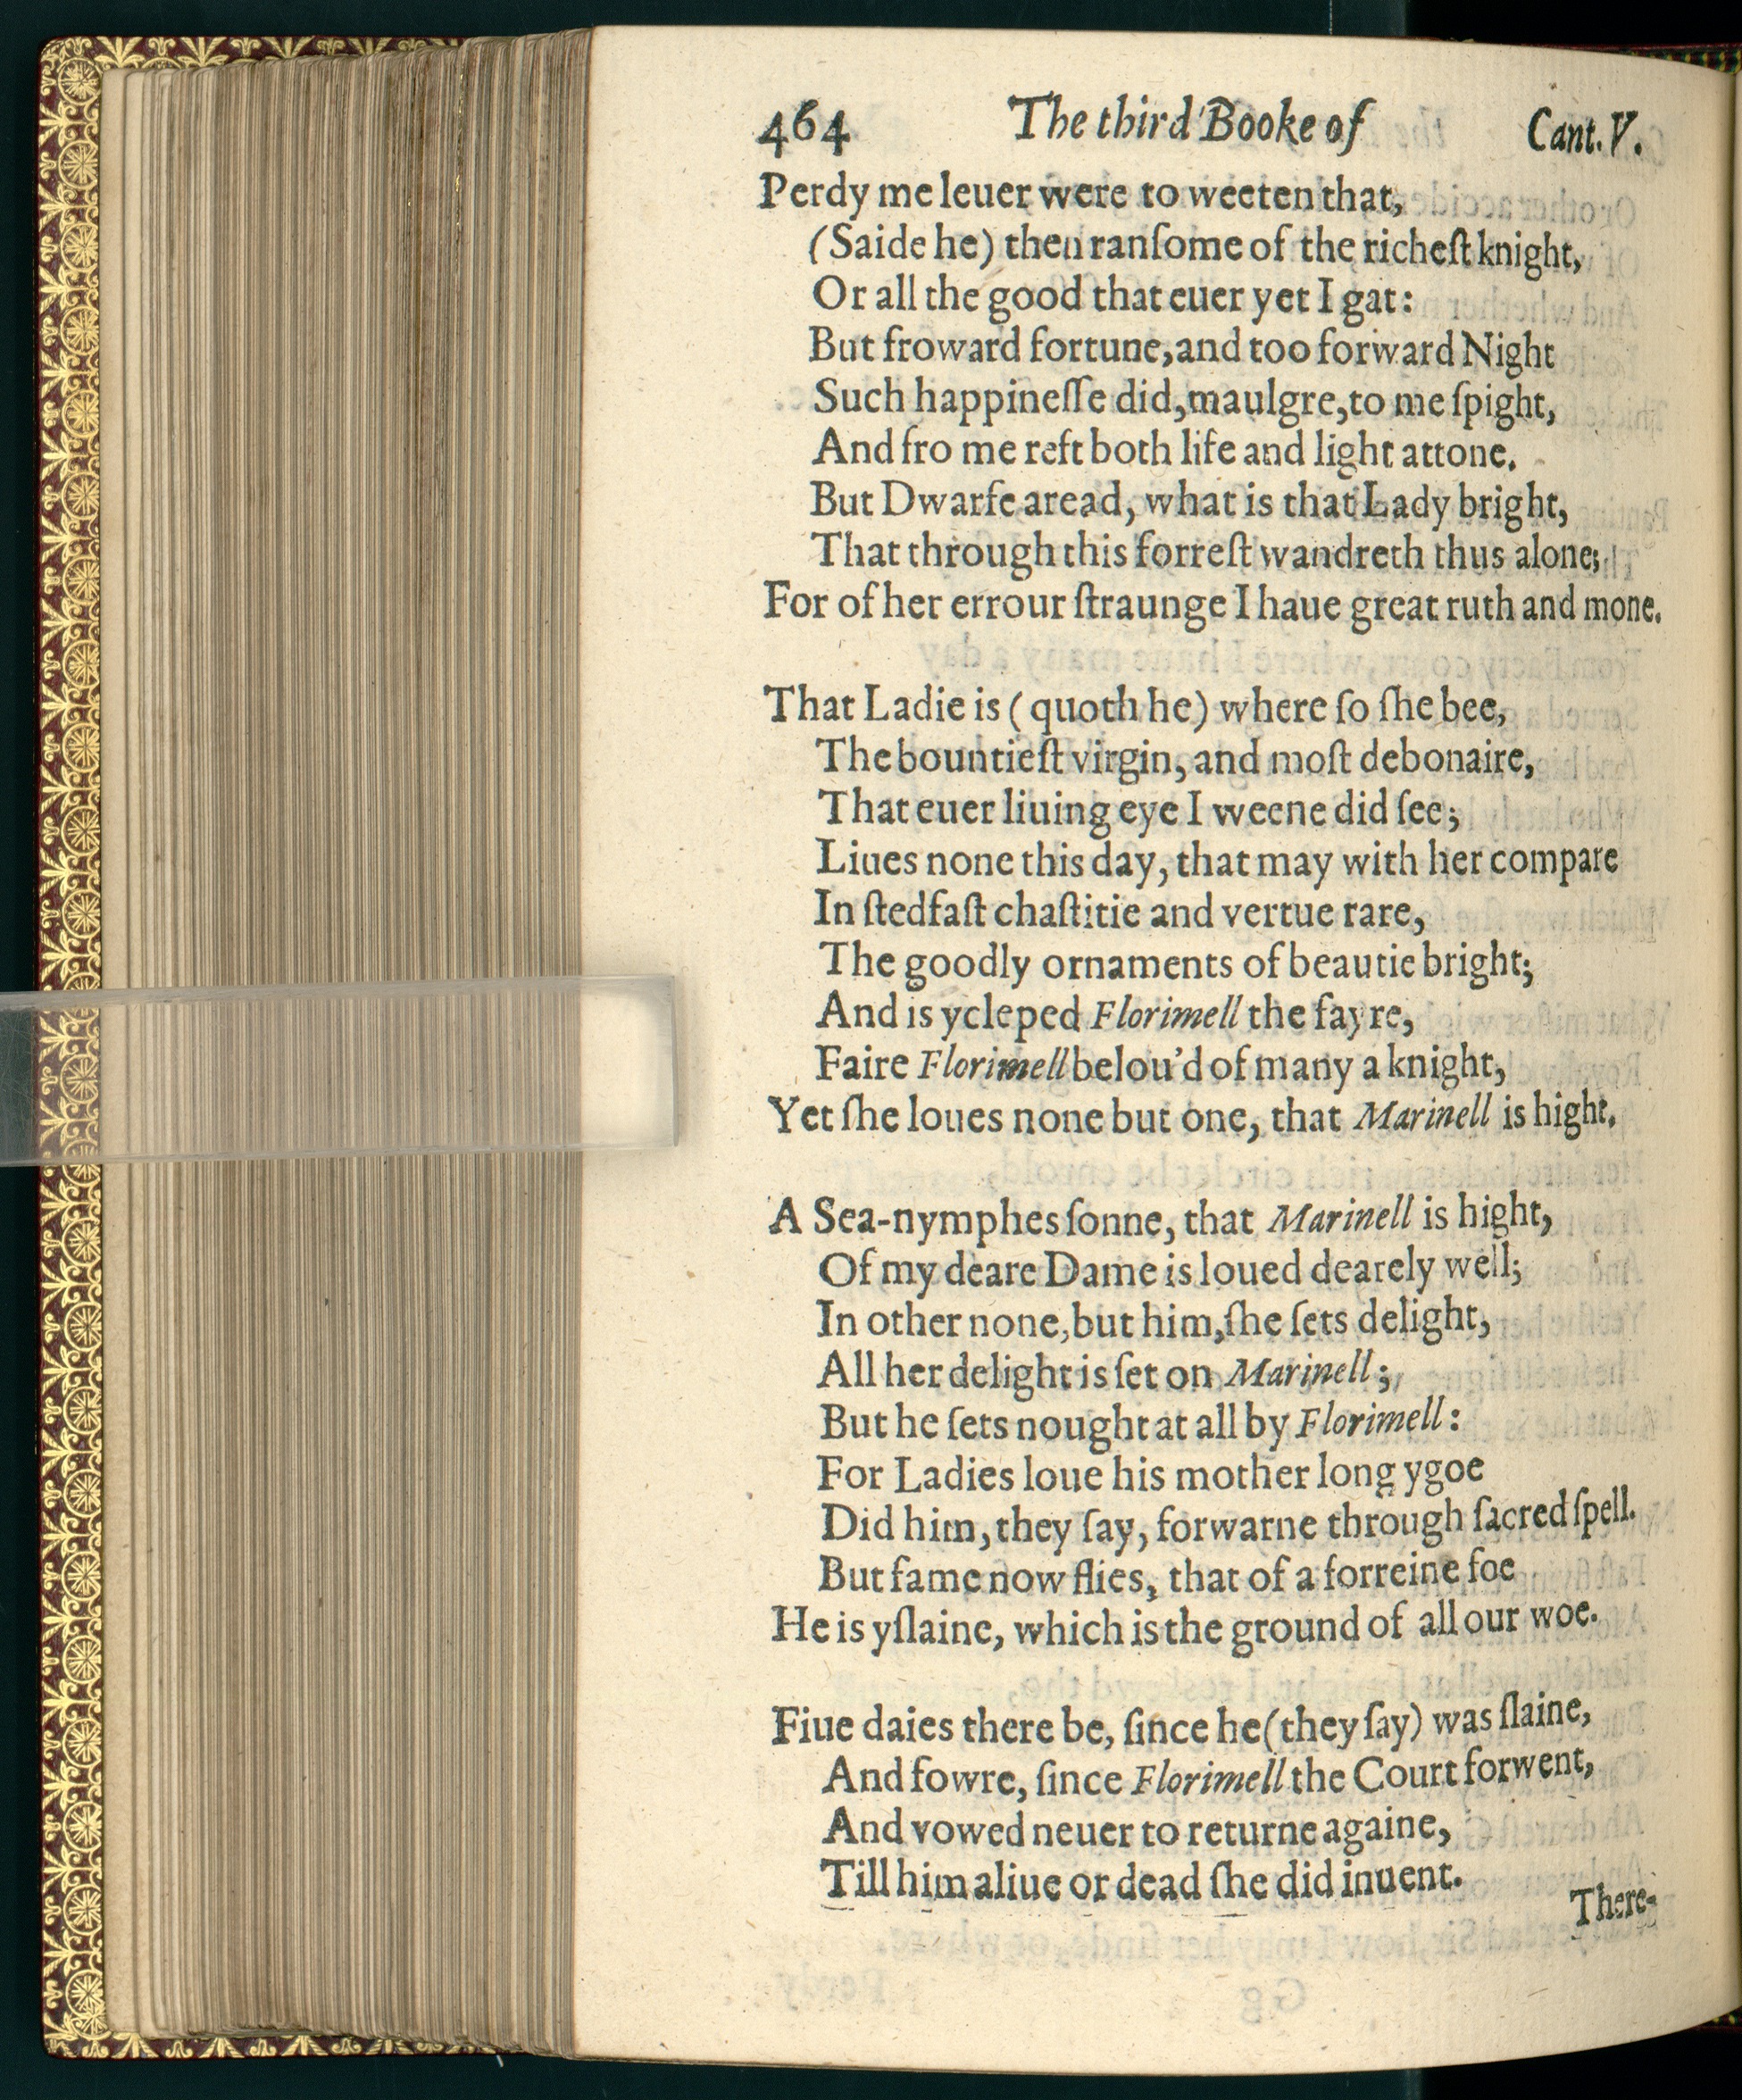 464 The third Booke of Cant. V.
Perdy me leuer were to weeten that,
(Saide he) then ranſome of the richeſt knight,
Or all the good that euer yet I gat:
But froward fortune, and too forward Night
Such happineſſe did, maulgre, to me ſpight,
And fro me reft both life and light attone.
But Dwarfe aread, what is that Lady bright,
That through this forreſt wandreth thus alone;
For of her errour ſtraunge I haue great ruth and mone.
That Ladie is (quoth he) where ſo ſhe bee,
The bountieſt virgin, and moſt debonaire,
That euer liuing eye I weene did ſee;
Liues none this day, that may with her compare
In ſtedfaſt chaſtitie and vertue rare,
The goodly ornaments of beautie bright;
And is ycleped Florimell the fayre,
Faire Florimell belou'd of many a knight,
Yet ſhe loues none but one, that Marinell is hight.
A Sea-nymphes ſonne, that Marinell is hight,
Of my deare Dame is loued dearely well;
In other none, but him, ſhe ſets delight,
All her delight is ſet on Marinell;
But he ſets nought at all by Florimell:
For Ladies loue his mother long ygoe
Did him, they ſay, forwarne through ſacred ſpell.
But fame now flies, that of a forreine foe
He is yſlaine, which is the ground of all our woe.
Fiue daies there be, ſince he (they ſay) was ſlaine,
And fowre, ſince Florimell the Court forwent,
And vowed neuer to returne againe,
Till him aliue or dead ſhe did inuent.
There-